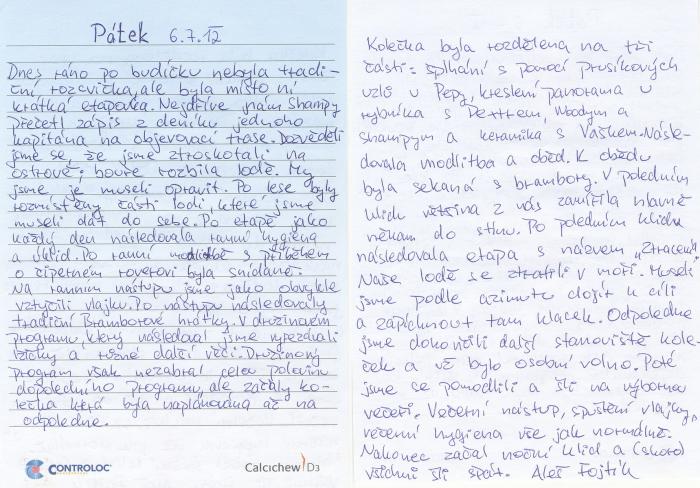 Pátek 6.7.12
Dnes ráno po budíčku nebyla tradi-
ční rozcvička, ale byla místo ní
krátká etapovka. Nejdříve nám Shampy
přečetl zápis z deníku jednoho
kapitána na objevovací trase. Dozvěděli
jsme se, že jsme ztroskotali na
ostrově; bouře rozbila lodě. My
jsme je museli opravit. Po lese byly
rozmístěny části lodi, které jsme
museli dát do sebe. Po etapě jako
každý den následovala ranní hygiena
a úklid. Po ranní modlidbě s příběhem
o čiperném roverovi byla snídaně.
Na ranním nástupu jsme jako obvykle
vztyčili vlajku. Po nástupu následovaly
tradiční Bramborové hrátky. V družinovém
programu, který následoval jsme vyřezávali
lžičky a různé další věci. Družinový
program však nezabral celou polovinu
dopoledního programu, ale začaly ko-
lečka která byla naplánována až na
odpoledne.
CONTROLOC
Calcichew D3
Kolečka byla rozdělena na tři
části: šplhání s pomocí prusíkových
uzlů u Pepy, kreslení panorama u
rybníka s Dextrem, Woodym a
Shampym a keramika s Vaškem. Násle-
dovala modlitba a oběd. K obědu
byla sekaná s brambory. V poledním
klidu většina z nás zamířila hlavně
někam do stínu. Po poledním klidu
následovala etapa s názvem "Ztraceni"
Naše lodě se ztratili v moři. Museli
jsme podle azimutu dojít k cíli
a zapíchnout tam klacek. Odpoledne
jsme dokončili další stanoviště kole-
ček a už bylo osobní volno. Poté
jsme se pomodlili a šli na výbornou
večeři. Večerní nástup, spuštění vlajky,
večerní hygiena vše jak normálně.
Nakonec začal noční klid a (skoro)
všichni šli spát. Aleš Fojtík